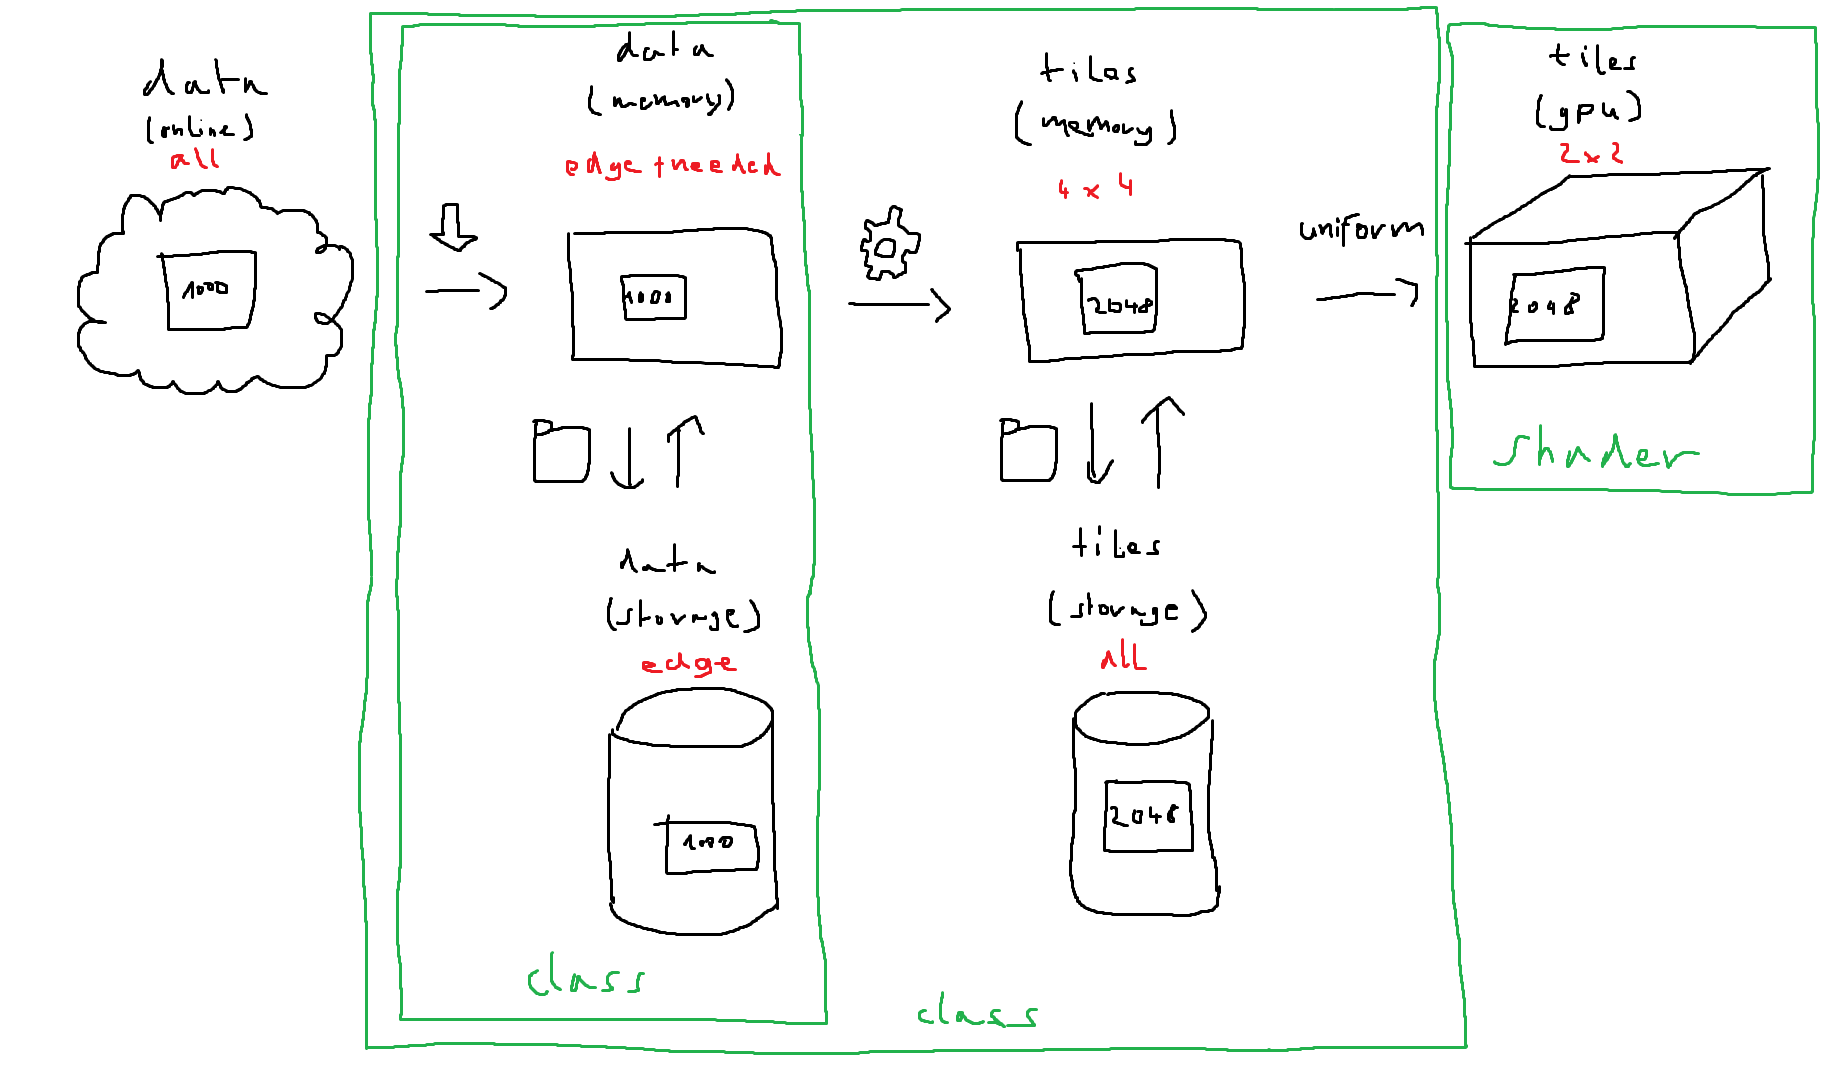 data
(online)
all
1000
data
(memory)
edge + needed
1000
data
(storage)
edge
1000
class
tiles
(memory)
4 x 4
2048
tiles
(storage)
all
2048
class
uniform
tiles
(gpu)
2 x 2
2048
shader